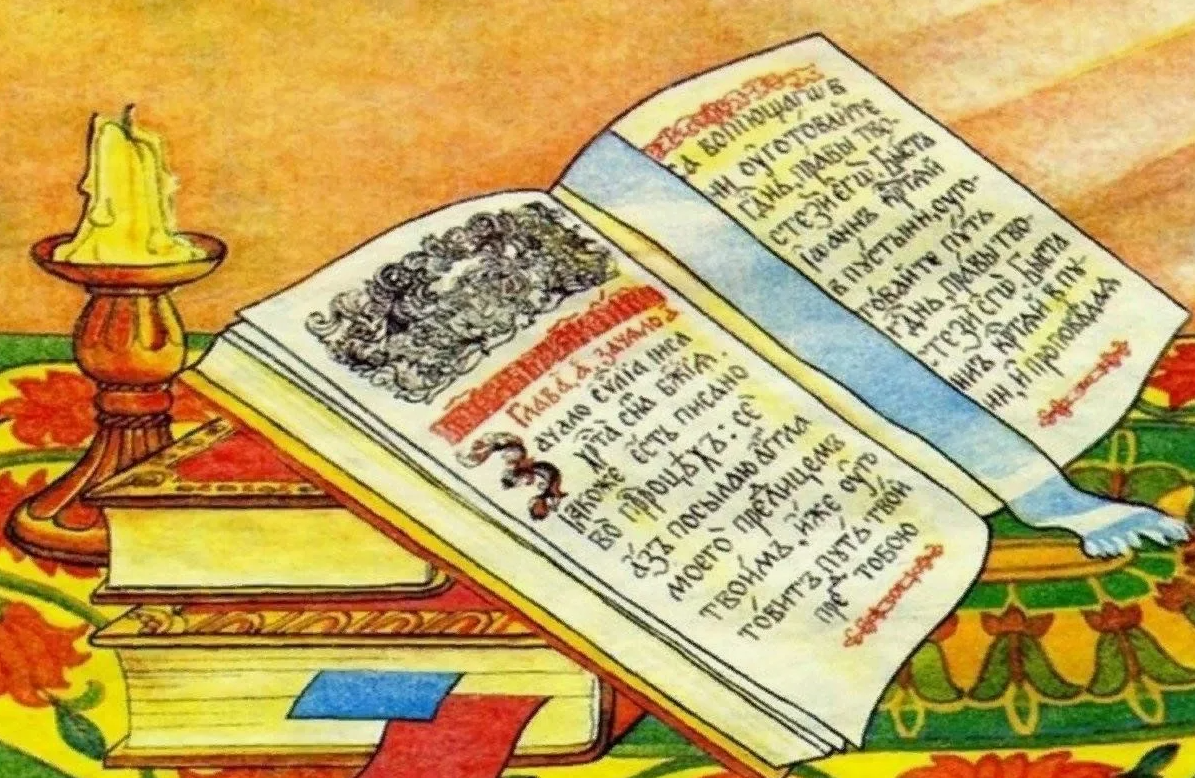 Глава, а, зачало а
ачало еѵⷢ҇лїа іи҃са
хрⷭ҇та̀ сн҃а бж҃їѧ.
ꙗ҆́коже є҆́сть писано
во прⷪ҇роцѣхъ: сѐ
а҆́зъ посылаю а҆́гг҃ла
моего̀ пред̾ лицемъ
твои́мъ, и҆́же оу҆гѡ
то́витъ пꙋ́ть тво́й
пред̾ тобою
са вопїющагѡ в
ни оу҆гото́вайте
гдⷭ҇нь, правы тво-
стезѝ є҆гѡ̀. Бы́ста
Іѡаннъ кртⷭ҇ѧй
в пꙋсты́ни, оуго-
то́вайте пꙋ́ть
гдⷭ҇нь, правы тво-
стезѝ є҆гѡ̀. Бы́ста
ннъ кртⷭ҇ѧй в пꙋ-
ни, и҆ проповѣдаѧ